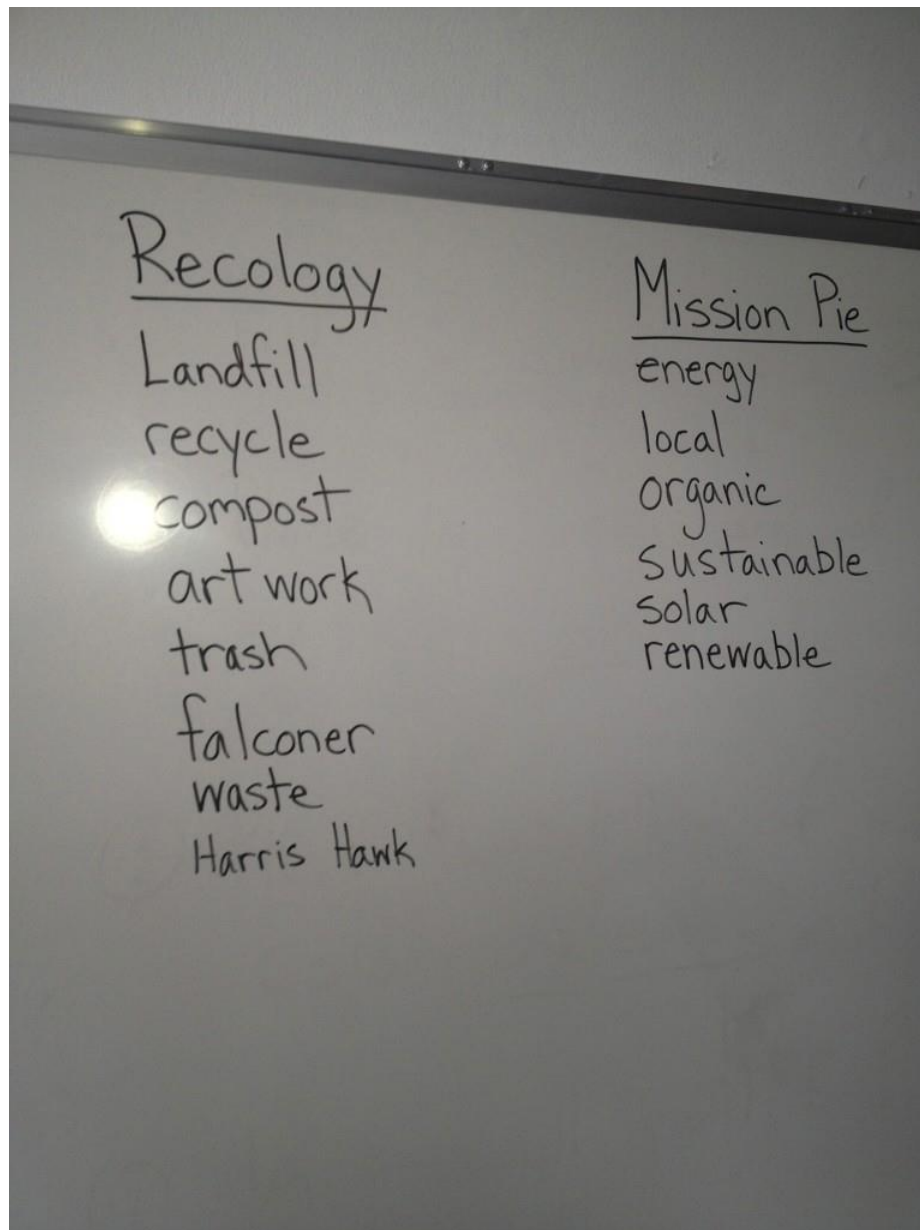 Recology
Landfill
recycle
compost
art work
trash
falconer
waste
Harris Hawk
Mission Pie
energy
local
organic
sustainable
solar
renewable